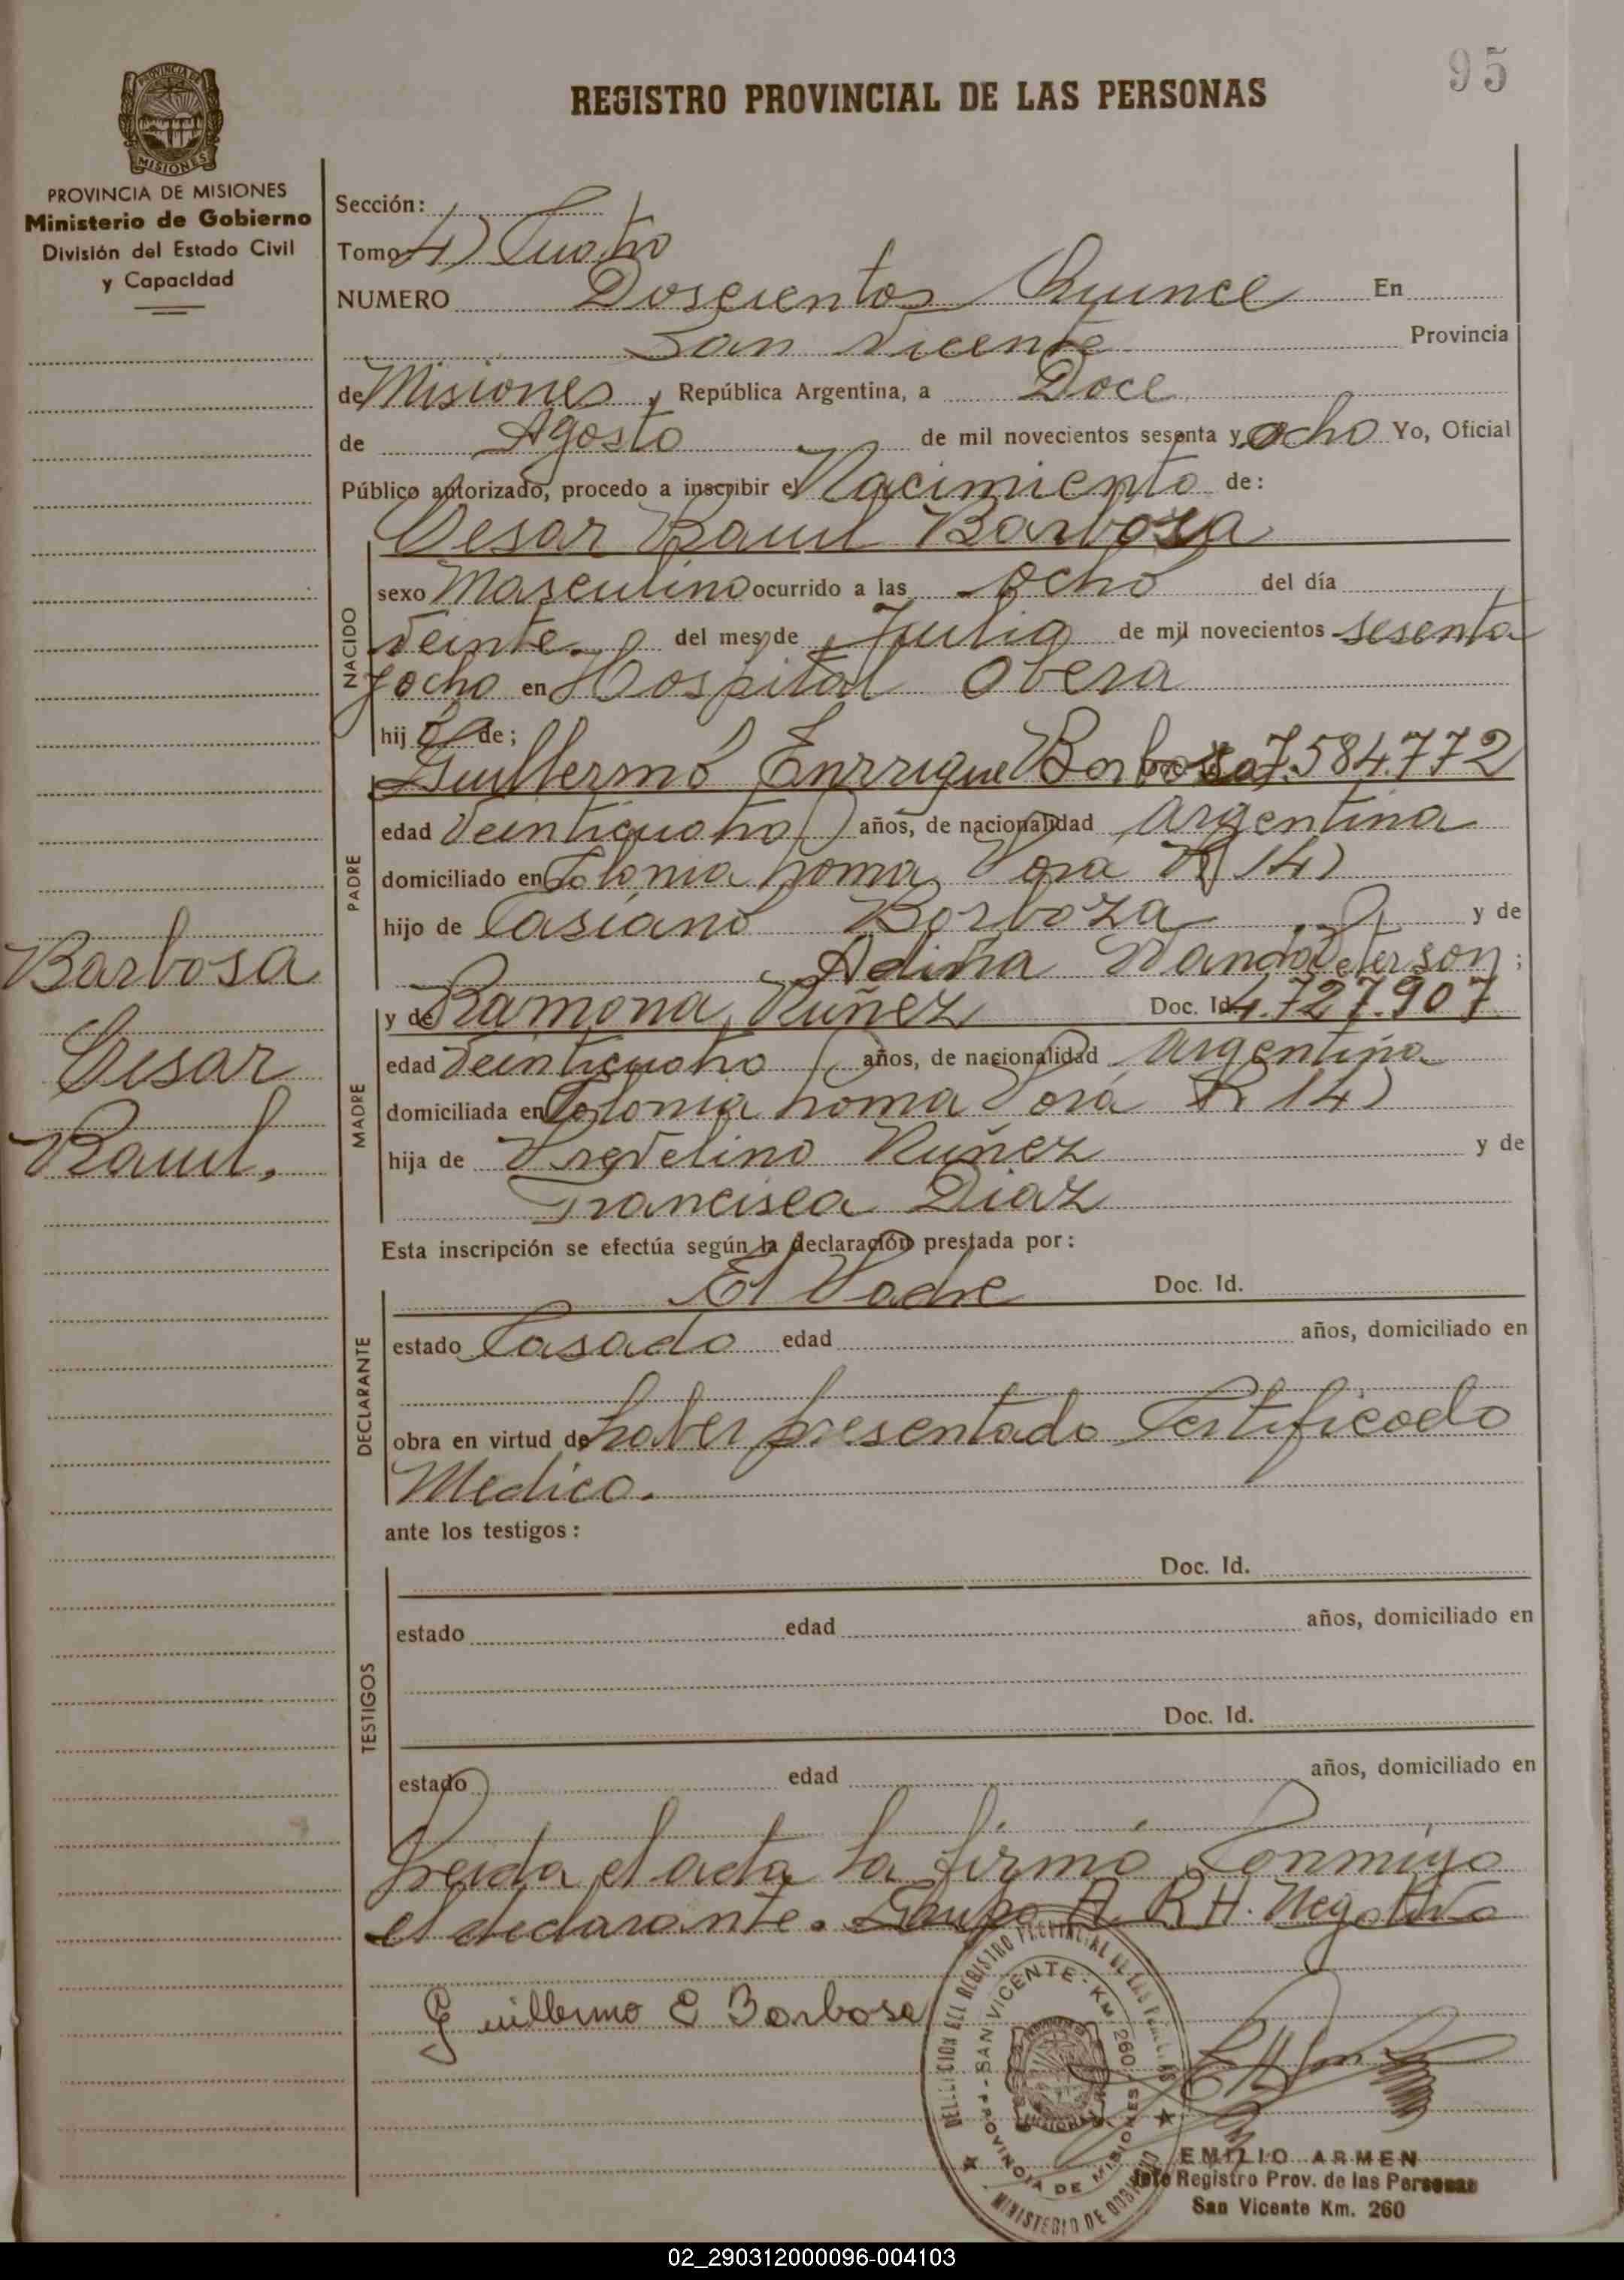 95
REGISTRO PROVINCIAL DE LAS PERSONAS
PROVINCIA DE
MISIONES
PROVINCIA DE MISIONES
Ministerio de Gobierno
División del Estado Civil
y Capacidad
Sección:
Tomo 4) Cuatro
NUMERO Doscientos Quince En
San Vicente Provincia
de Misiones, República Argentina, a Doce
de Agosto de mil novecientos sesenta y ocho Yo, Oficial
Público autorizado, procedo a inscribir el Nacimiento de:
Cesar Raul Barbosa
NACIDO
sexo Masculino ocurrido a las ocho del día
Veinte del mes de Julio de mil novecientos sesenta
y ocho en Hospital Obera
hijo de;
PADRE
Guillermo Enrrique Barbosa 7.584.772
edad Veinticuatro años, de nacionalidad Argentina
domiciliado en Colonia Loma Porá R 14)
hijo de Casiano Borboza y de
Adina Wanda Peterson;
MADRE
y de Ramona Nuñez Doc. Id. 4.727.907
edad Veinticuatro años, de nacionalidad Argentina
domiciliada en Colonia Loma Porá R 14)
hija de Nuñez y de
Francisca Diaz
Barbosa
Cesar
Raul,
Esta inscripción se efectúa según la declaración prestada por:
DECLARANTE
El Padre Doc. Id.
estado Casado edad años, domiciliado en
obra en virtud de haber presentado Certificado
Medico.
ante los testigos:
TESTIGOS
Doc. Id.
estado edad años, domiciliado en
Doc. Id.
estado edad años, domiciliado en
Leida el acta la firmó Conmigo
el declarante. Grupo A. R H. Negativo
Guillermo E Barbosa
REGISTRO PROVINCIAL DE LAS PERSONAS
SAN VICENTE - KM. 260
PROVINCIA DE MISIONES
MINISTERIO DE GOBIERNO
EMILIO ARMEN
Jefe Registro Prov. de las Personas
San Vicente Km. 260
02_290312000096-004103